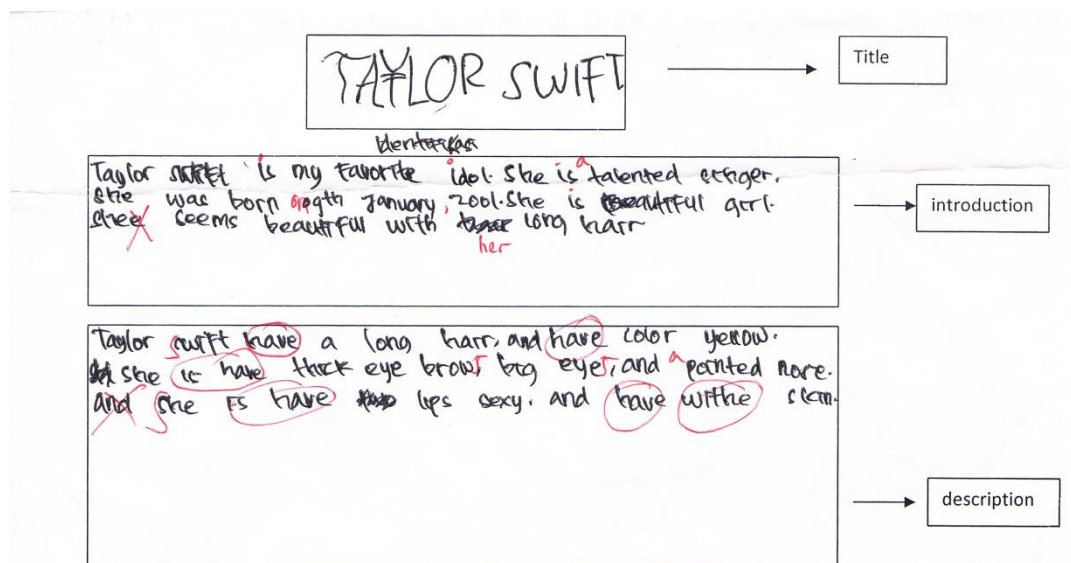 TAYLOR SWIFT
Title
Taylor swift is my Favorite idol. She is a talented
she was born January, 2001. She is beautiful girl.
shee seems beautiful with long harr
her
introduction
Taylor swift have a long harr, and have color yellow.
she is have thick eye brows big eyes, and a pointed nore.
and she is have lips sexy. and have withe
description